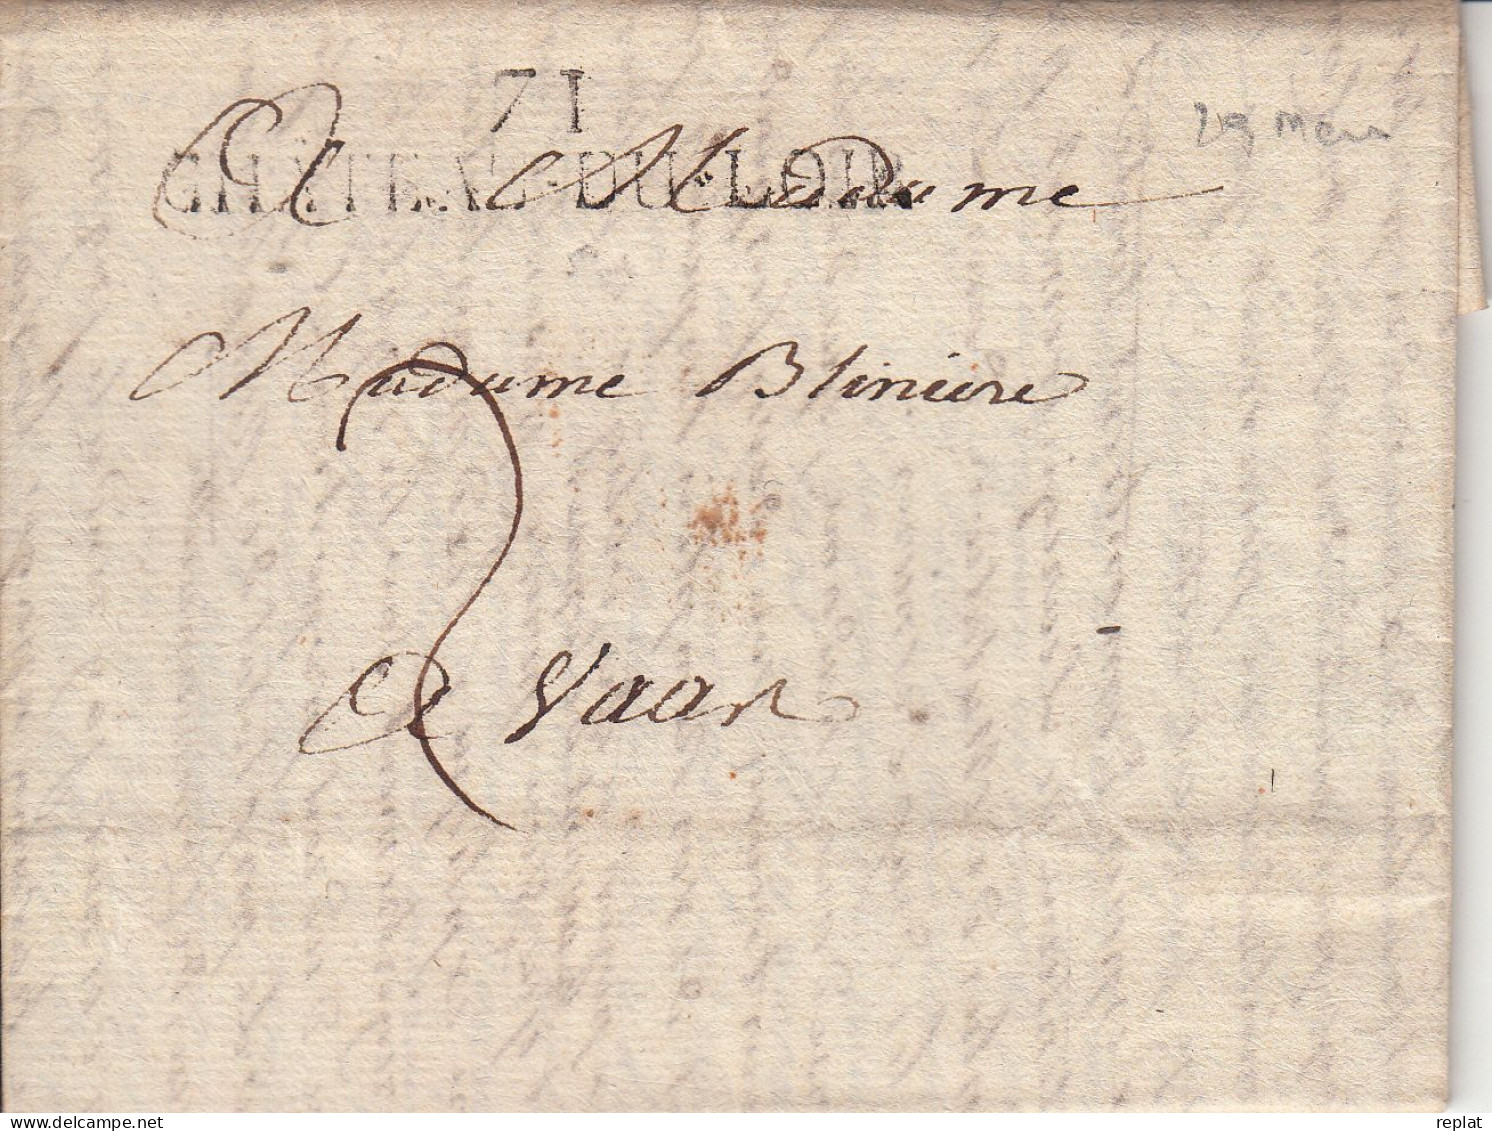 71
CHÂTEAU-DU-LOIR
A Madame
Madame Bliniere
2
a Vaas
delcampe.net
replat